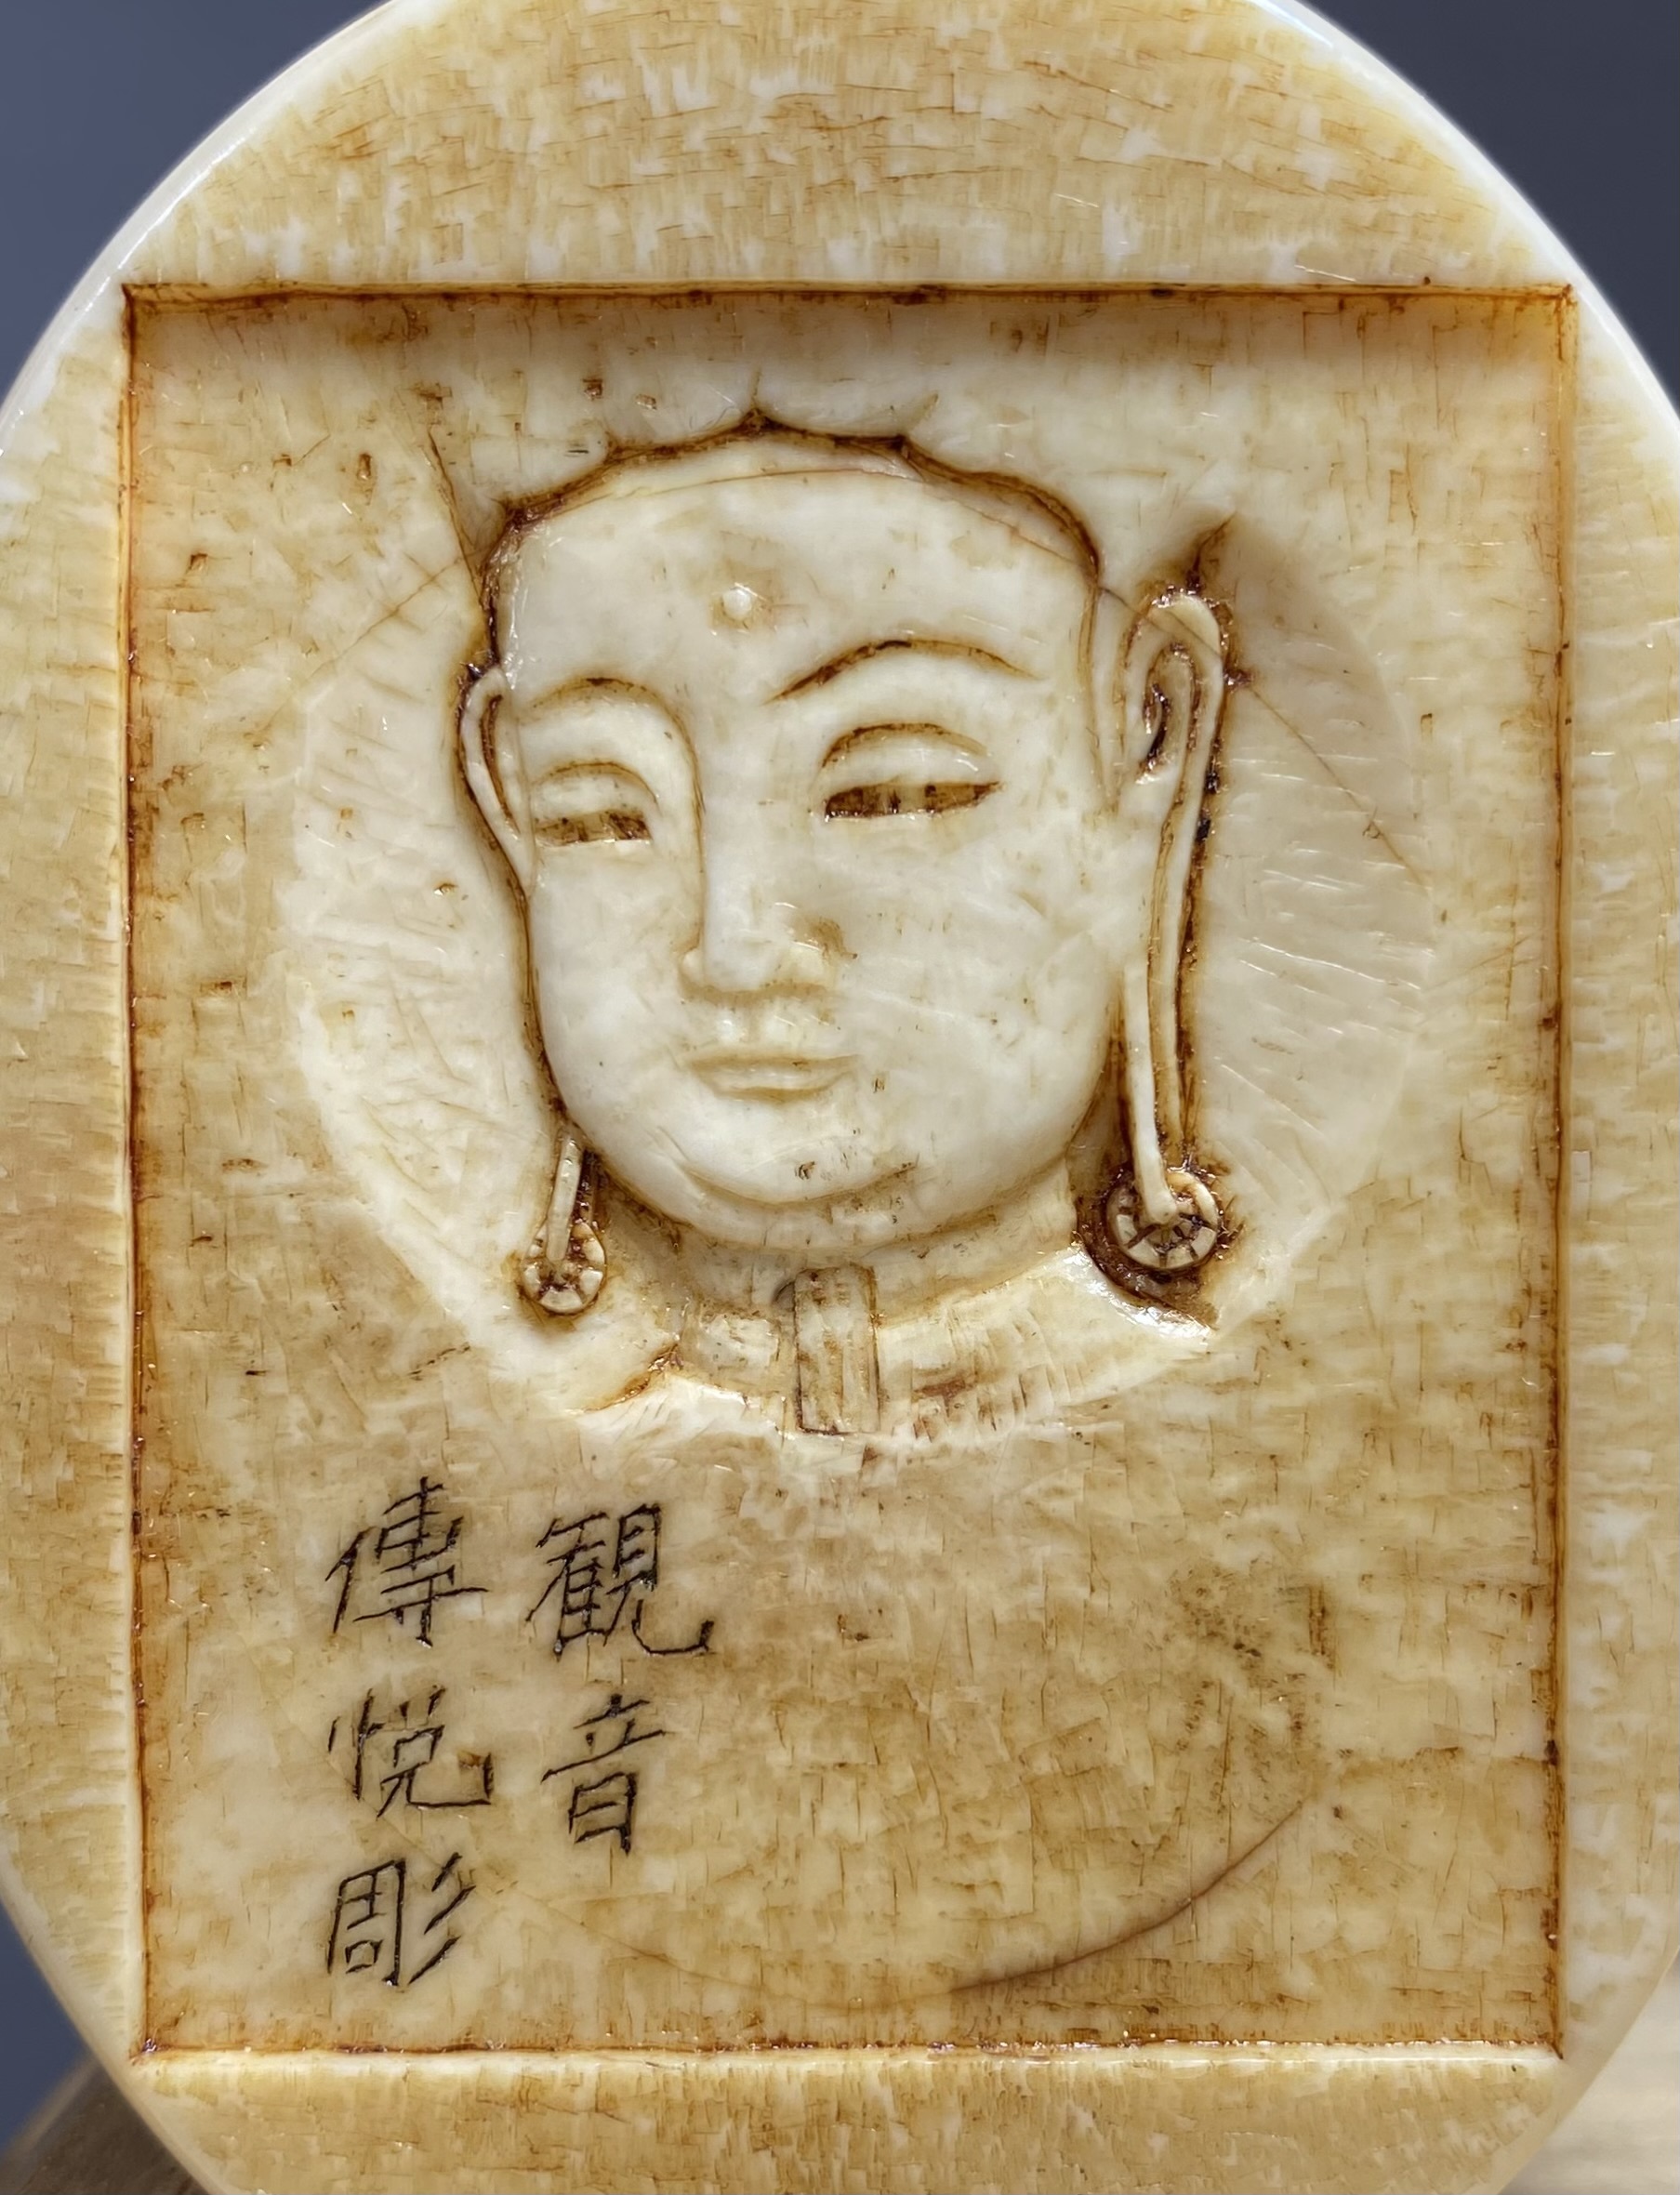 観音
傳悦彫